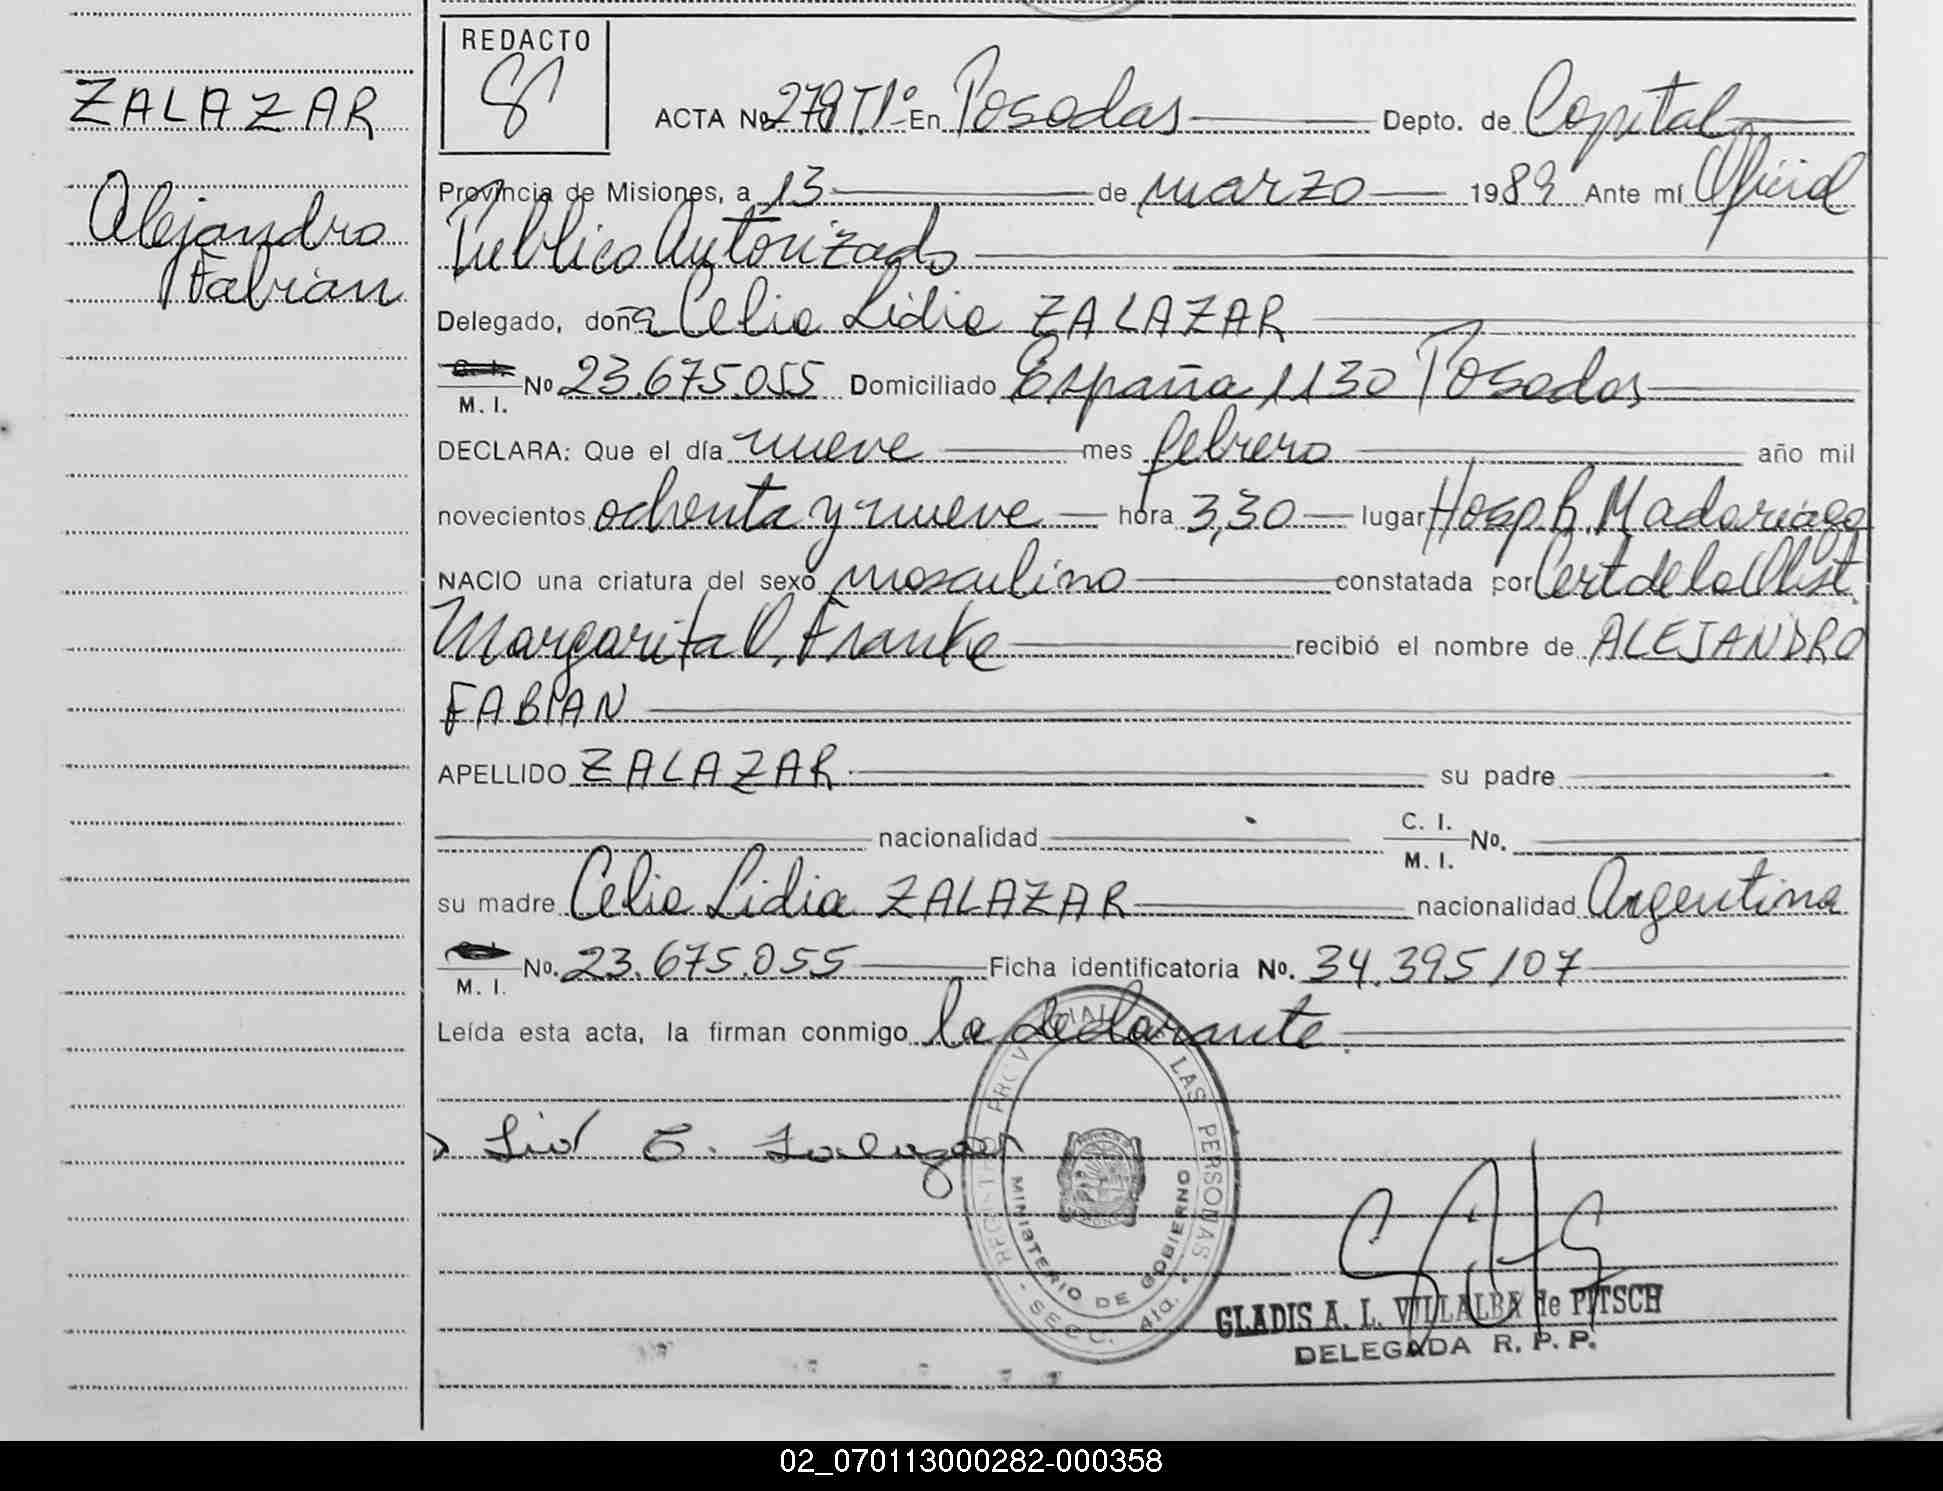 ZALAZAR
Alejandro
Fabian
REDACTO
ACTA No 279 T.1º En Posadas Depto. de Capital
Provincia de Misiones, a 13 de marzo 1989 Ante mí Oficial
Publico Autorizado
Delegado, doña Celia Lidia ZALAZAR
M. I. No 23.675.055 Domiciliado España 1130 Posadas
DECLARA: Que el día nueve mes febrero año mil
novecientos ochenta y nueve hora 3,30 lugar Hosp. R. Madariaga
NACIO una criatura del sexo masculino constatada por Cert de la Obst.
Margarita O. Franke recibió el nombre de ALEJANDRO
FABIAN
APELLIDO ZALAZAR su padre
nacionalidad C. I. M. I. No.
su madre Celia Lidia ZALAZAR nacionalidad Argentina
M. I. No. 23.675.055 Ficha identificatoria No. 34.395107
Leída esta acta, la firman conmigo la declarante.
REGISTRO PROVINCIAL DE LAS PERSONAS
MINISTERIO DE GOBIERNO
- SECC. 4ta. -
GLADIS A. L. VILLALBA de PITSCH
DELEGADA R. P. P.
02_070113000282-000358